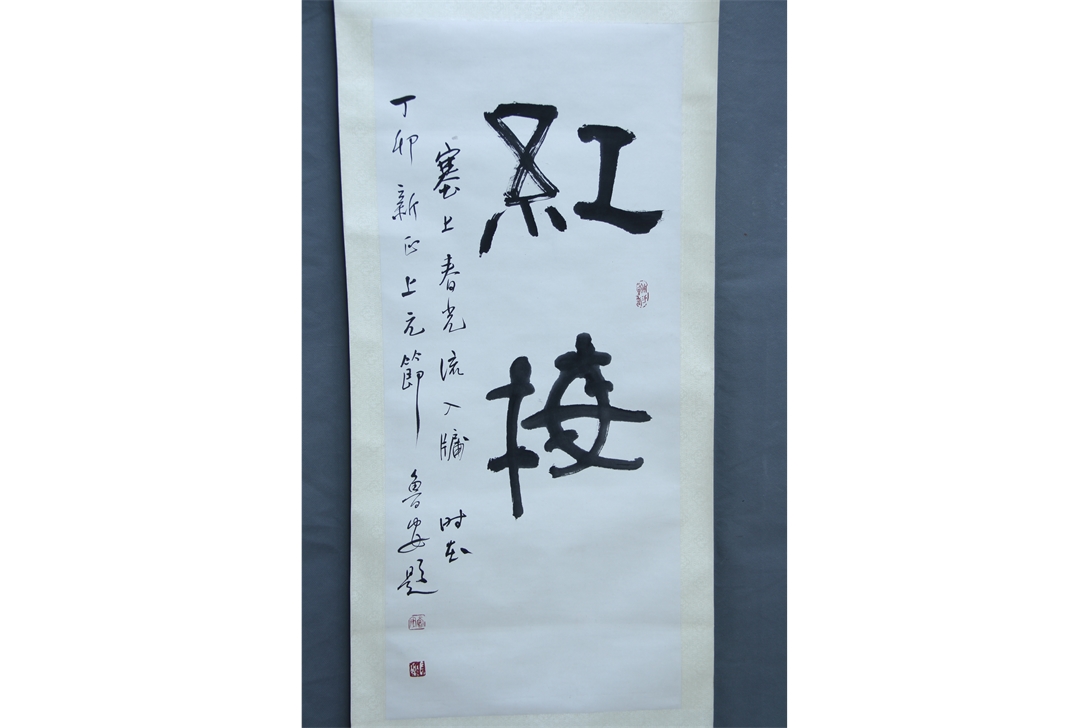 紅梅
塞上春光流入牖 时在
丁卯新正上元節 魯安題